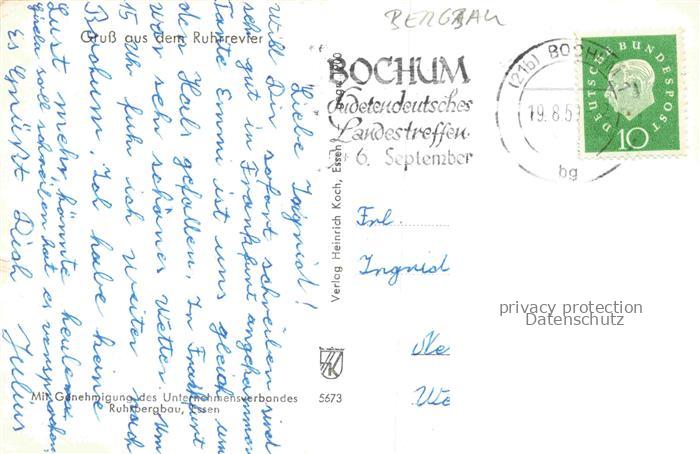 BERGBAU
Gruß aus dem Ruhrrevier
Liebe Ingrid!
Will Dir sofort schreiben sind
sehr gut in Frankfurt angekommen
Tante Emmi ist uns gleich um
den Hals gefallen. In Frankfurt
war sehr schönes Wetter. Um
15 Uhr fuhr ich weiter nach
Bochum. Ich habe keine
Lust mehr, könnte heulen.
Gisela soll schreiben hat es versprochen.
Es Grüßt Dich Julius
Verlag Heinrich Koch, Essen
BOCHUM
Sudetendeutsches
Landestreffen
6. September
(21b) BOCHUM
19.8.59
bg
DEUTSCHE BUNDESPOST
10
Frl.
Ingrid
Ne
We
privacy protection
Datenschutz
Mit Genehmigung des Unternehmensverbandes
Ruhrbergbau, Essen
5673